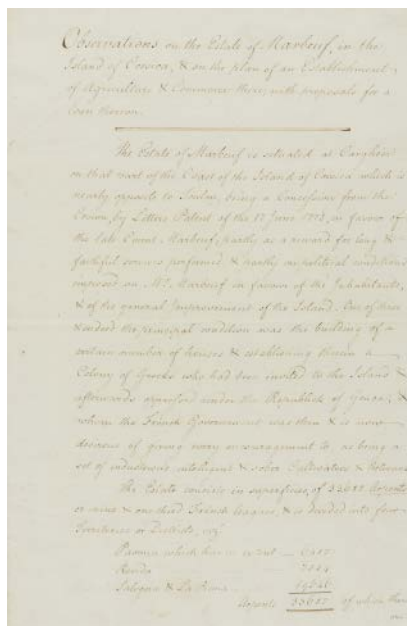 Observations on the Estate of Marbeuf, in the
Island of Corsica, & on the plan of an Establishment
of Agriculture & Commerce there; with proposals for a
Loan thereon.
The Estate of Marbeuf is situated at Carghese
on that part of the Coast of the Island of Corsica which is
nearly opposite to Toulon, being a Concession from the
Crown, by Letters Patent of the 17 June 1778, in favor of
the late Count Marbeuf, partly as a reward for long &
faithful services performed & partly on political conditions
imposed on Mr. Marbeuf in favour of the Inhabitants,
& of the general Improvement of the Island. One of these
& indeed the principal condition was the building of a
certain number of houses & establishing therein a
Colony of Greeks who had been invited to the Island &
afterwards oppressed under the Republick of Genoa; &
whom the French Government was then & is now
desirous of giving every encouragement to as being a
set of industrious intelligent & sober Cultivators &
The Estate consists in superficies, of 33607 Arpents
or nine & one third French leagues, & is divided into four
Territories or Districts, viz.
Paomia which
&
Arpents 33607 of which there